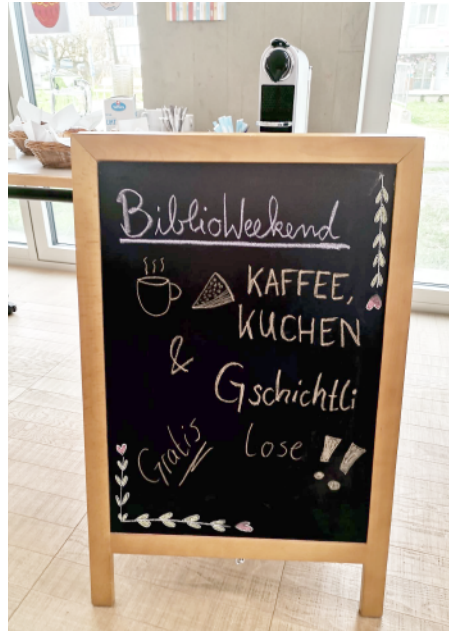 BiblioWeekend
KAFFEE,
KUCHEN
&
Gschichtli
Lose !!
Gratis